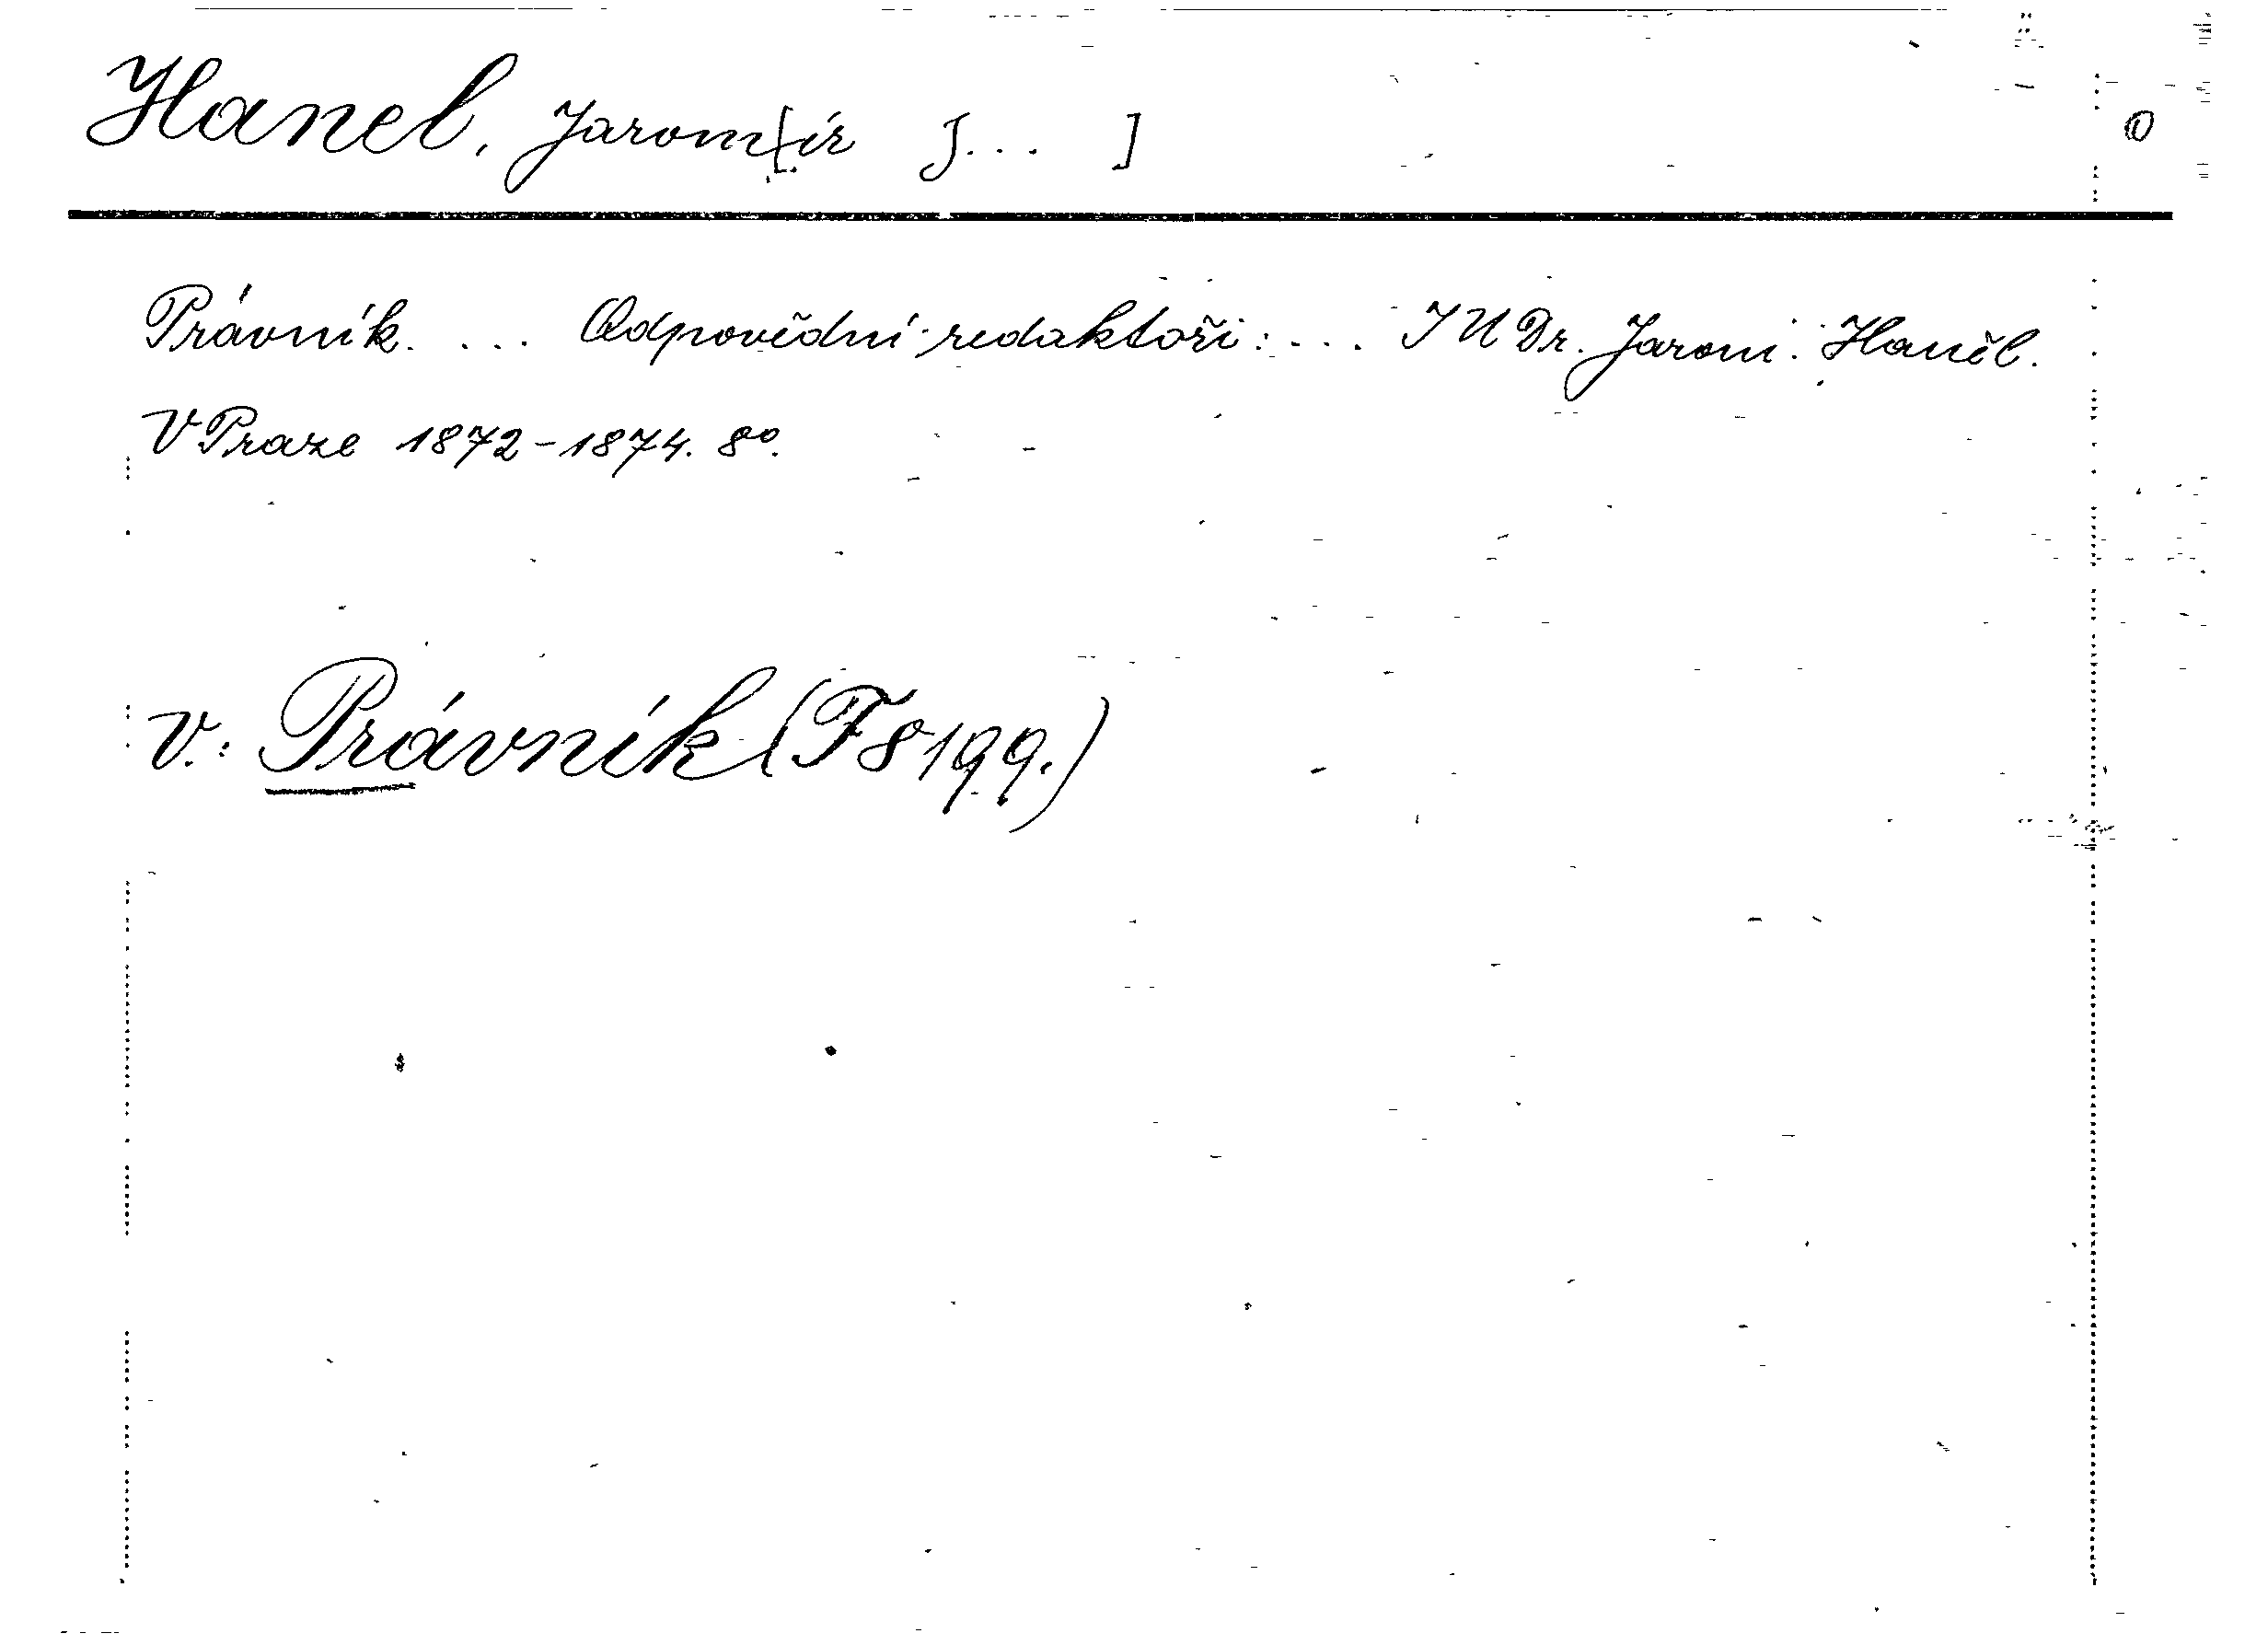 Hanel, Jarom[ír J... ]
Právník. ... Odpovědní redaktoři: ... JUDr. Jarom. Haněl.
V Praze 1872-1874. 8°.
V.: Právník (F 8199.)